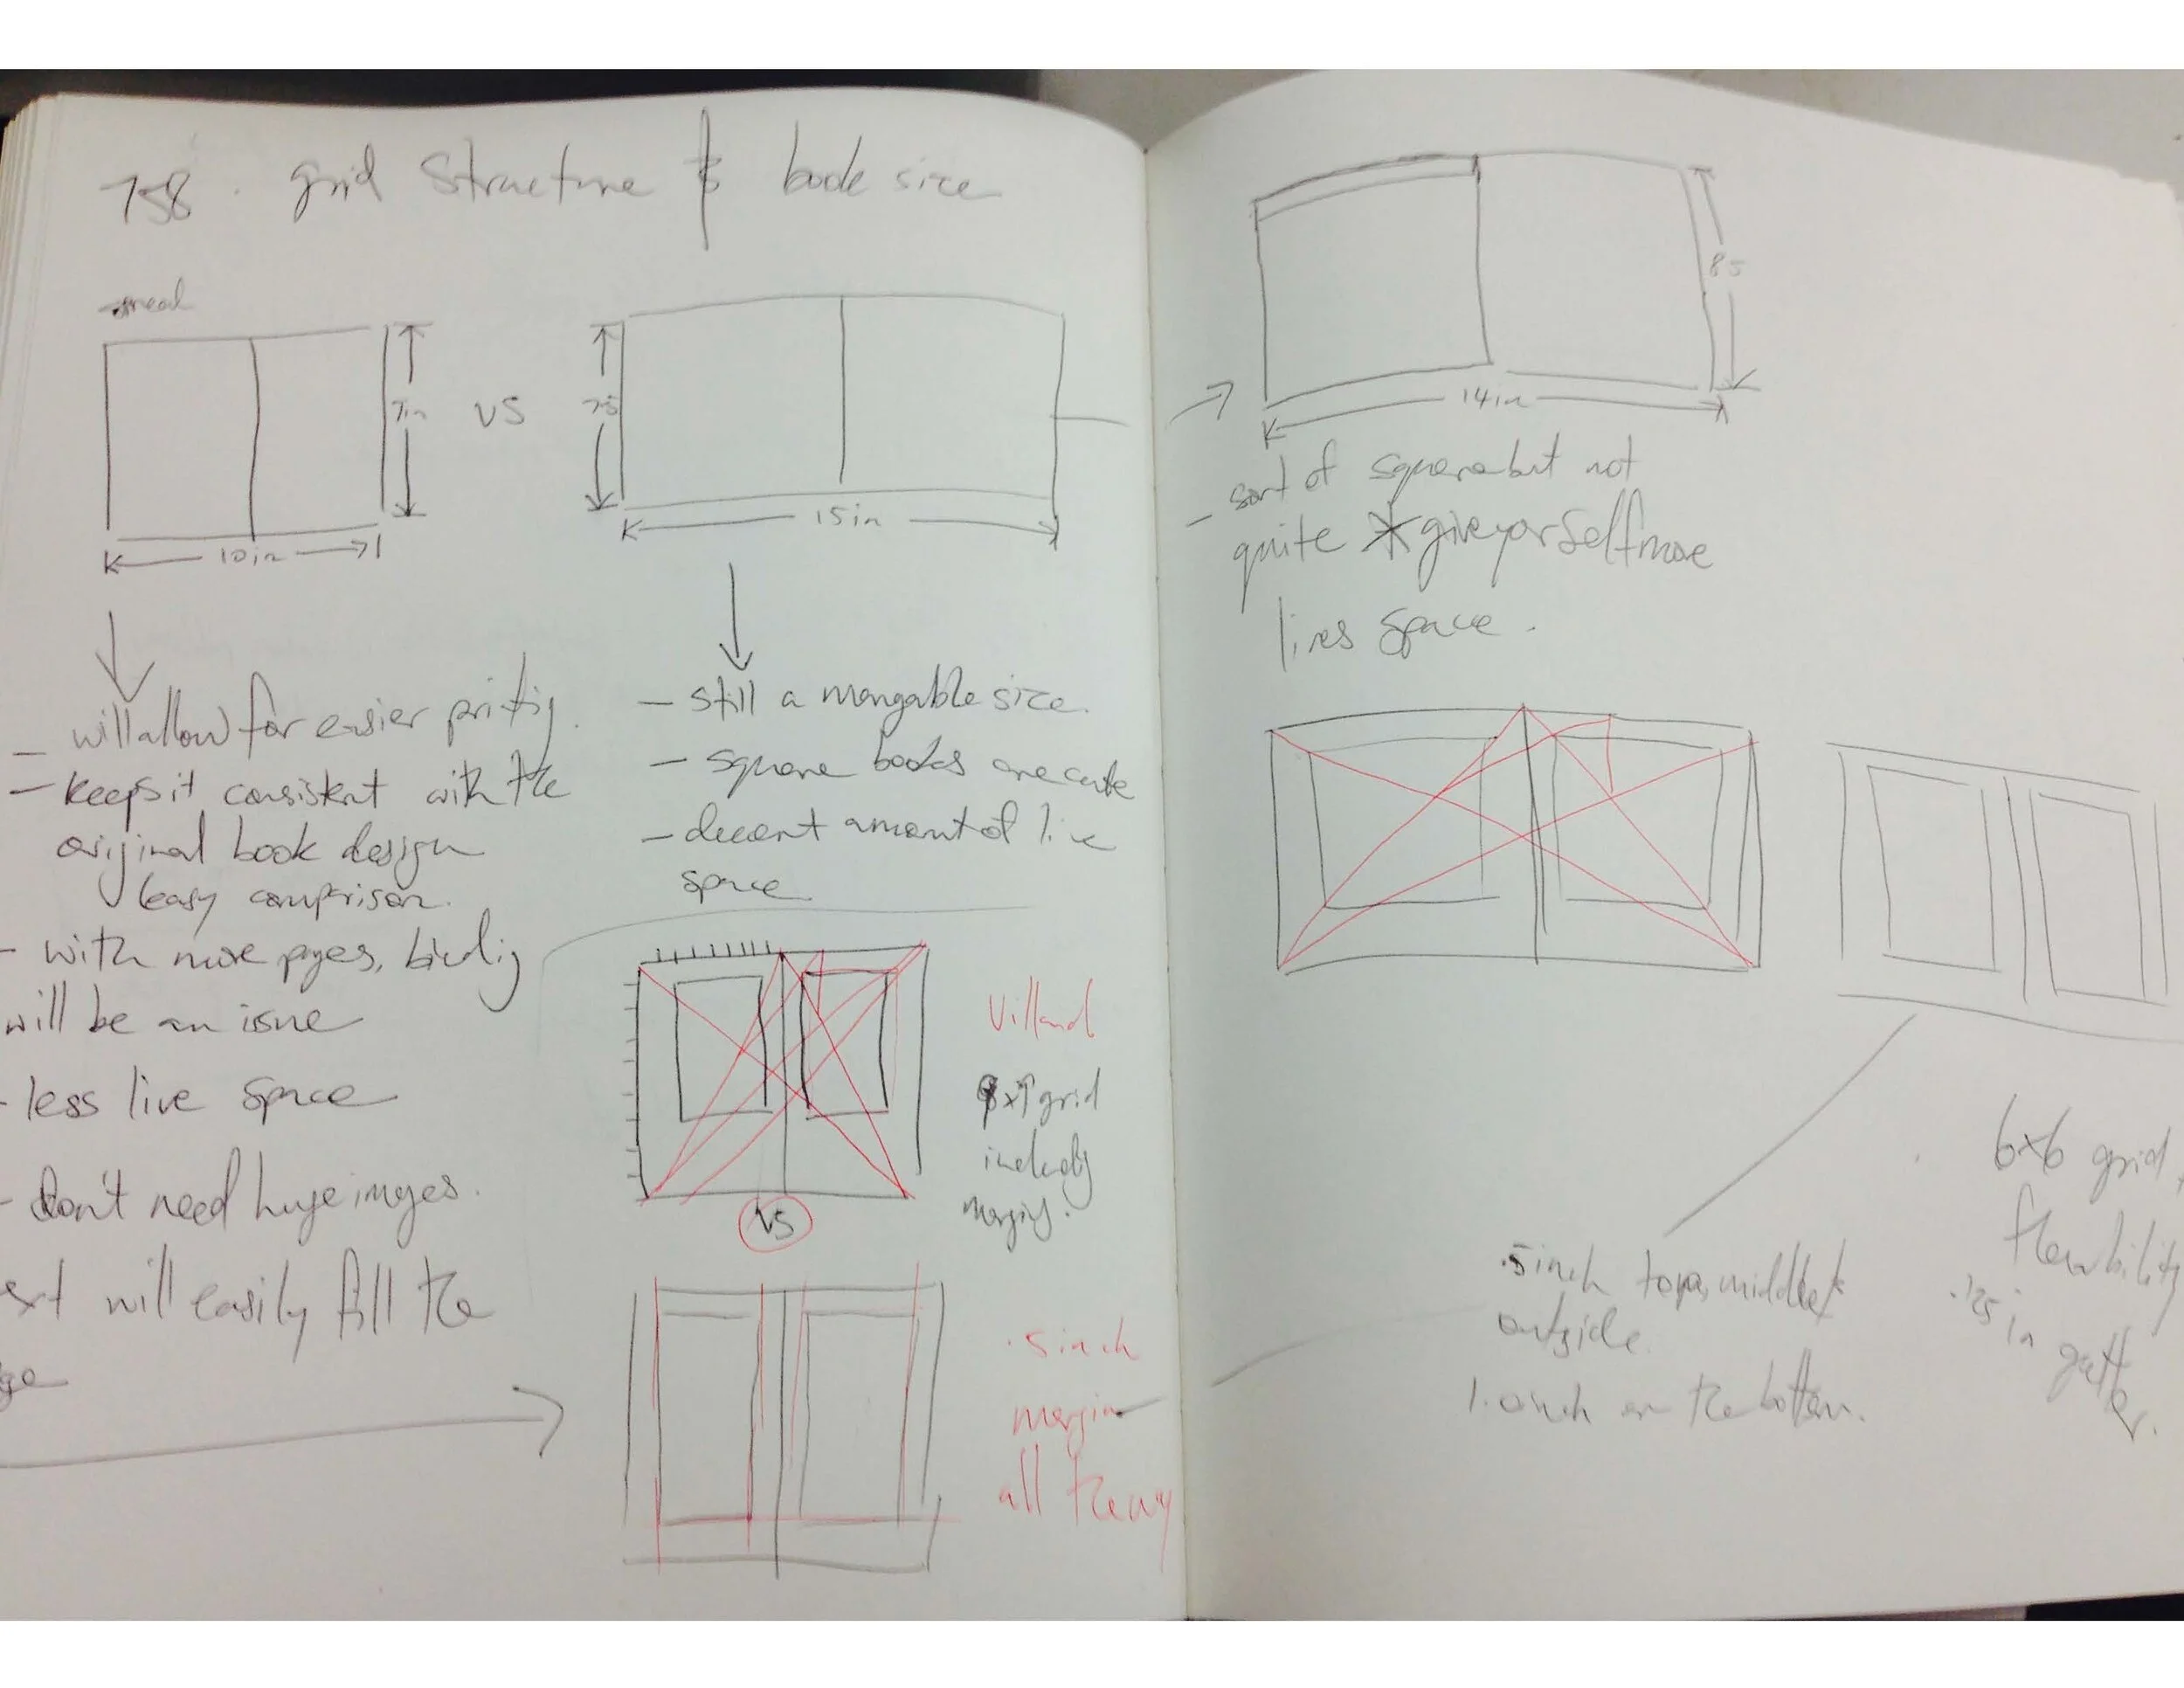 758. grid structure & book size
7in
10in
VS
7.5
15in
- will allow for easier printig.
- keeps it consistent with the
original book design
(easy comparison.
- with more pages, bindig
will be an issue
- less live space
- don't need huge images.
will easily fill the
- still a mangable size.
- square books are cute
- decent amount of live
space.
Villard
9x9 grid
includig
margins.
VS
.5 inch
margin
all the way
85
14in
- sort of square but not
quite * give yorself more
lives space.
6x6 grid,
flexibility
.125 in gutter.
.5 inch top, middle &
outside.
1.0 inch on the bottom.